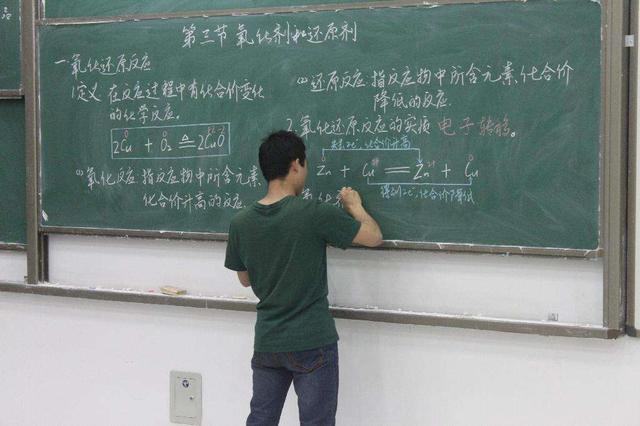 第三节 氧化剂和还原剂
一.氧化还原反应
1.定义 在反应过程中有化合价变化
的化学反应。
2Cu + O₂ ≜ 2CuO
(1) 氧化反应:指反应物中所含元素
化合价升高的反应.
(2) 还原反应:指反应物中所含元素化合价
降低的反应.
2.氧化还原反应的实质 电子转移。
失去2e⁻,化合价升高
Zn + Cu²⁺ = Zn²⁺ + Cu
得到2e⁻,化合价降低
氧化剂